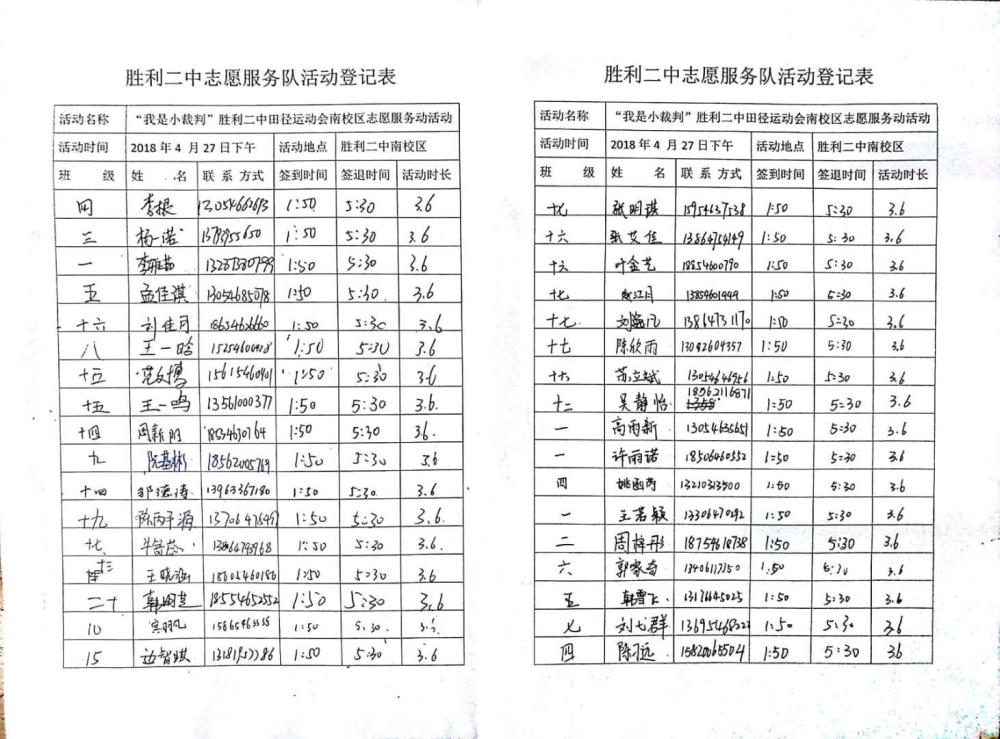 胜利二中志愿服务队活动登记表
活动名称 “我是小裁判”胜利二中田径运动会南校区志愿服务动活动
活动时间 2018 年 4 月 27 日下午 活动地点 胜利二中南校区
班 级 姓 名 联 系 方式 签到时间 签退时间 活动时长
四 李根 1:50 5:30 3.6
三 杨一诺 1:50 5:30 3.6
一 1:50 5:30 3.6
五 孟佳淇 13054685078 1:50 5:30 3.6
十六 刘佳月 1:50 5:30 3.6
八 王一晗 1:50 5:30 3.6
十五 15615460401 1:50 5:30 3.6
十五 王一鸣 13561000377 1:50 5:30 3.6.
十四 周新明 1:50 5:30 3.6.
九 阮基彬 18562005769 1:50 5:30 3.6
十四 邹德涛 13963367180 1:50 5:30. 3.6
十九 1:50 5:30 3.6.
1:50 5:30 3.6.
王晓涵 18605460186 1:50 5:30 3.6
二十 韩明慧 18554652552 1:50 5:30 3.6
10 1:50 5:30.
15 1:50 5:30 3.6
胜利二中志愿服务队活动登记表
活动名称 “我是小裁判”胜利二中田径运动会南校区志愿服务动活动
活动时间 2018 年 4 月 27 日下午 活动地点 胜利二中南校区
班 级 姓 名 联 系 方式 签到时间 签退时间 活动时长
张明琪 15954637538 1:50 5:30 3.6
十六 张艾佳 13864754149 1:50 5:30 3.6
十六 叶金艺 18854600790 1:50 5:30 3.6
十七 13854601449 1:50 5:30 3.6
十七 13864731170 1:50 5:30 3.6
十七 陈欣雨 13042604357 1:50 5:30 3.6
十六 苏立斌 13054646956 1:50 5:30 3.6
十二 吴静怡 18562116871 1:50 5:30 3.6
一 高雨新 13054635651 1:50 5:30 3.6
一 许雨诺 18506460552 1:50 5:30 3.6
四 13210313500 1:50 5:30 3.6
一 王若颖 13306470292 1:50 5:30 3.6
二 周梓彤 18754618738 1:50 5:30 3.6
六 郭家奇 13406117150 1:50 3.6
五 韩雪飞 13176645025 1:50 5:30 3.6
七 刘弋群 1:50 5:30 3.6
四 15820065504 1:50 5:30 3.6